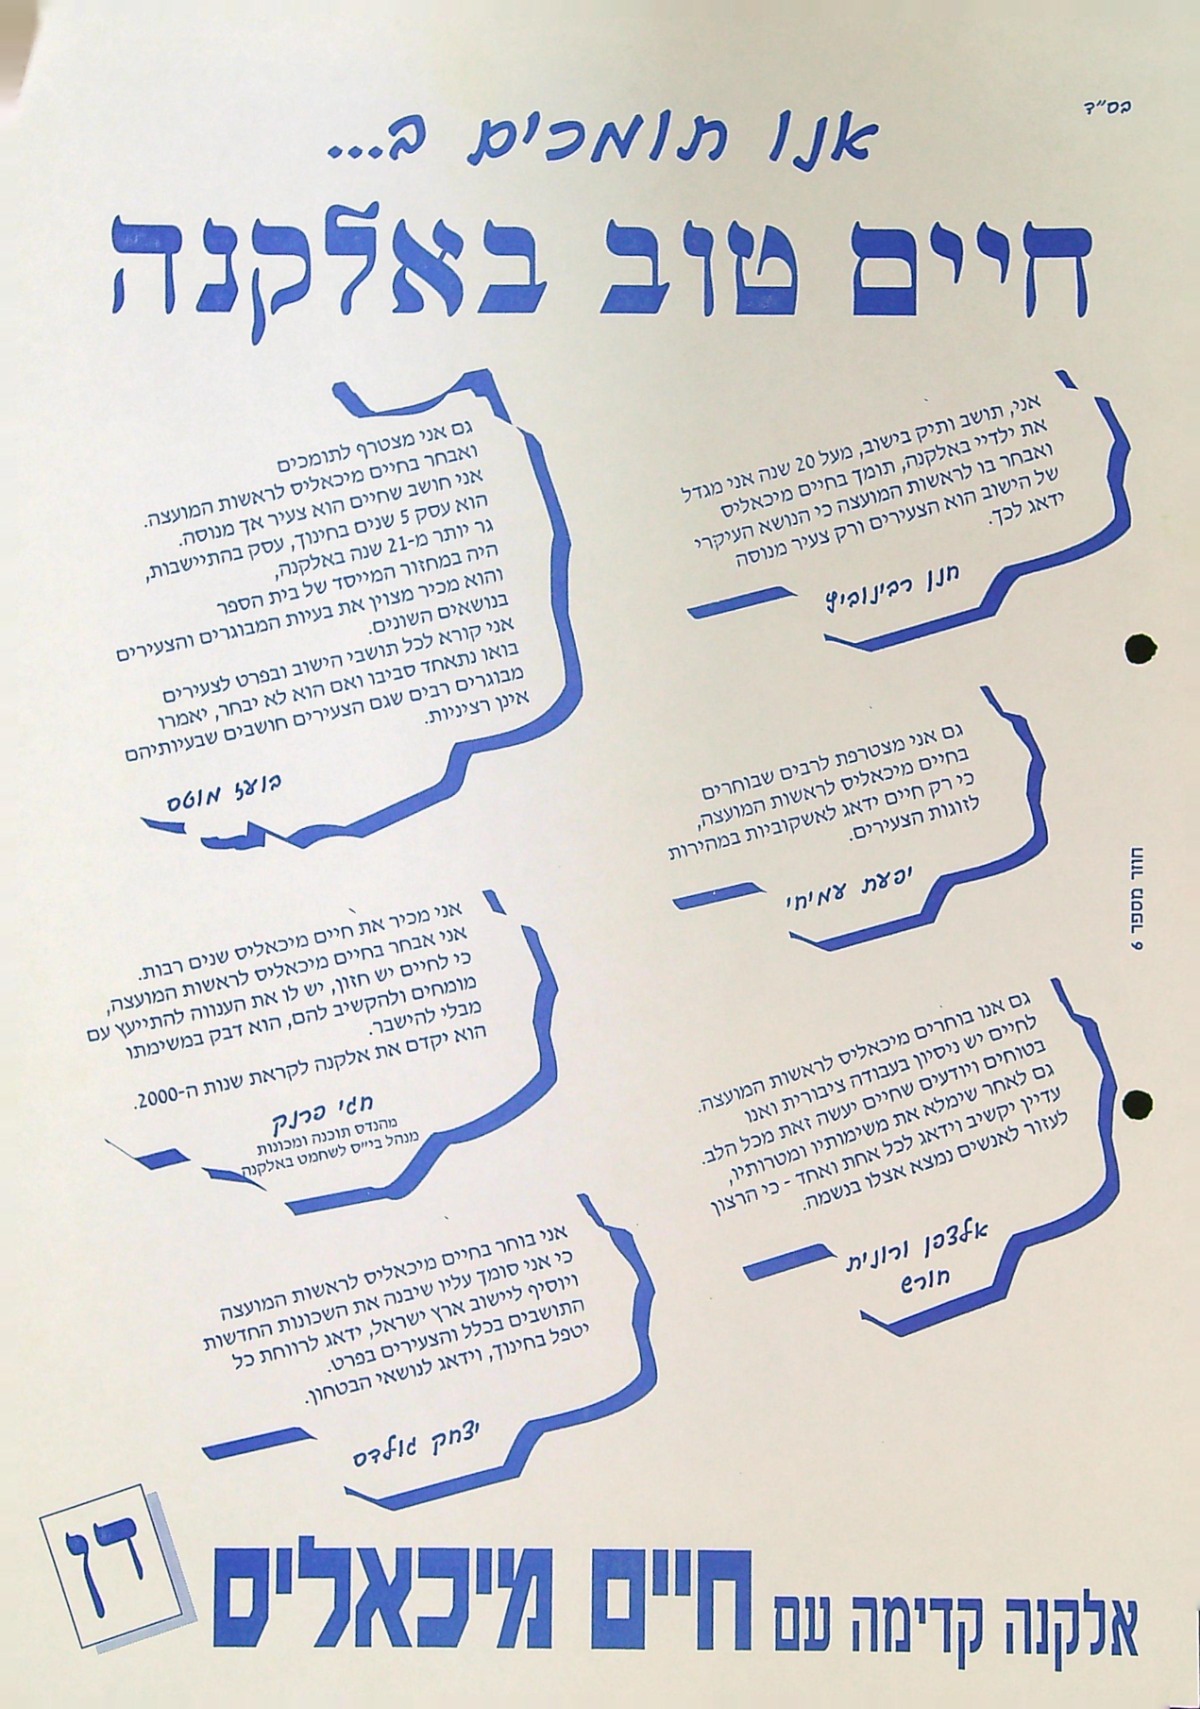 בס״ד
אנו תומכים ב...
חיים טוב באלקנה
אני, תושב ותיק בישוב, מעל 20 שנה אני מגדל
את ילדיי באלקנה, תומך בחיים מיכאליס
ואבחר בו לראשות המועצה כי הנושא העיקרי
של הישוב הוא הצעירים ורק צעיר מנוסה
ידאג לכך.
חנן רבינוביץ
גם אני מצטרפת לרבים שבוחרים
בחיים מיכאליס לראשות המועצה,
כי רק חיים ידאג לאשקוביות במהירות
לזוגות הצעירים.
יפעת עמיחי
גם אנו בוחרים מיכאליס לראשות המועצה.
לחיים יש ניסיון בעבודה ציבורית ואנו
בטוחים ויודעים שחיים יעשה זאת מכל הלב.
גם לאחר שימלא את משימותיו ומטרותיו,
עדיין יקשיב וידאג לכל אחת ואחד - כי הרצון
לעזור לאנשים נמצא אצלו בנשמה.
אלצפן ורונית
חורש
גם אני מצטרף לתומכים
ואבחר בחיים מיכאליס לראשות המועצה.
אני חושב שחיים הוא צעיר אך מנוסה.
הוא עסק 5 שנים בחינוך, עסק בהתיישבות,
גר יותר מ-21 שנה באלקנה,
היה במחזור המייסד של בית הספר
והוא מכיר מצוין את בעיות המבוגרים והצעירים
בנושאים השונים.
אני קורא לכל תושבי הישוב ובפרט לצעירים
בואו נתאחד סביבו ואם הוא לא יבחר, יאמרו
מבוגרים רבים שגם הצעירים חושבים שבעיותיהם
אינן רציניות.
בועז מוטס
אני מכיר את חיים מיכאליס שנים רבות.
אני אבחר בחיים מיכאליס לראשות המועצה,
כי לחיים יש חזון, יש לו את הענווה להתייעץ עם
מומחים ולהקשיב להם, הוא דבק במשימתו
מבלי להישבר.
הוא יקדם את אלקנה לקראת שנות ה-2000.
חגי פרנק
מהנדס תוכנה ומכונות
מנהל בי״ס לשחמט באלקנה
אני בוחר בחיים מיכאליס לראשות המועצה
כי אני סומך עליו שיבנה את השכונות החדשות
ויוסיף ליישוב ארץ ישראל, ידאג לרווחת כל
התושבים בכלל והצעירים בפרט.
יטפל בחינוך, וידאג לנושאי הבטחון.
יצחק גולדס
חוזר מספר 6
אלקנה קדימה עם חיים מיכאליס
דן